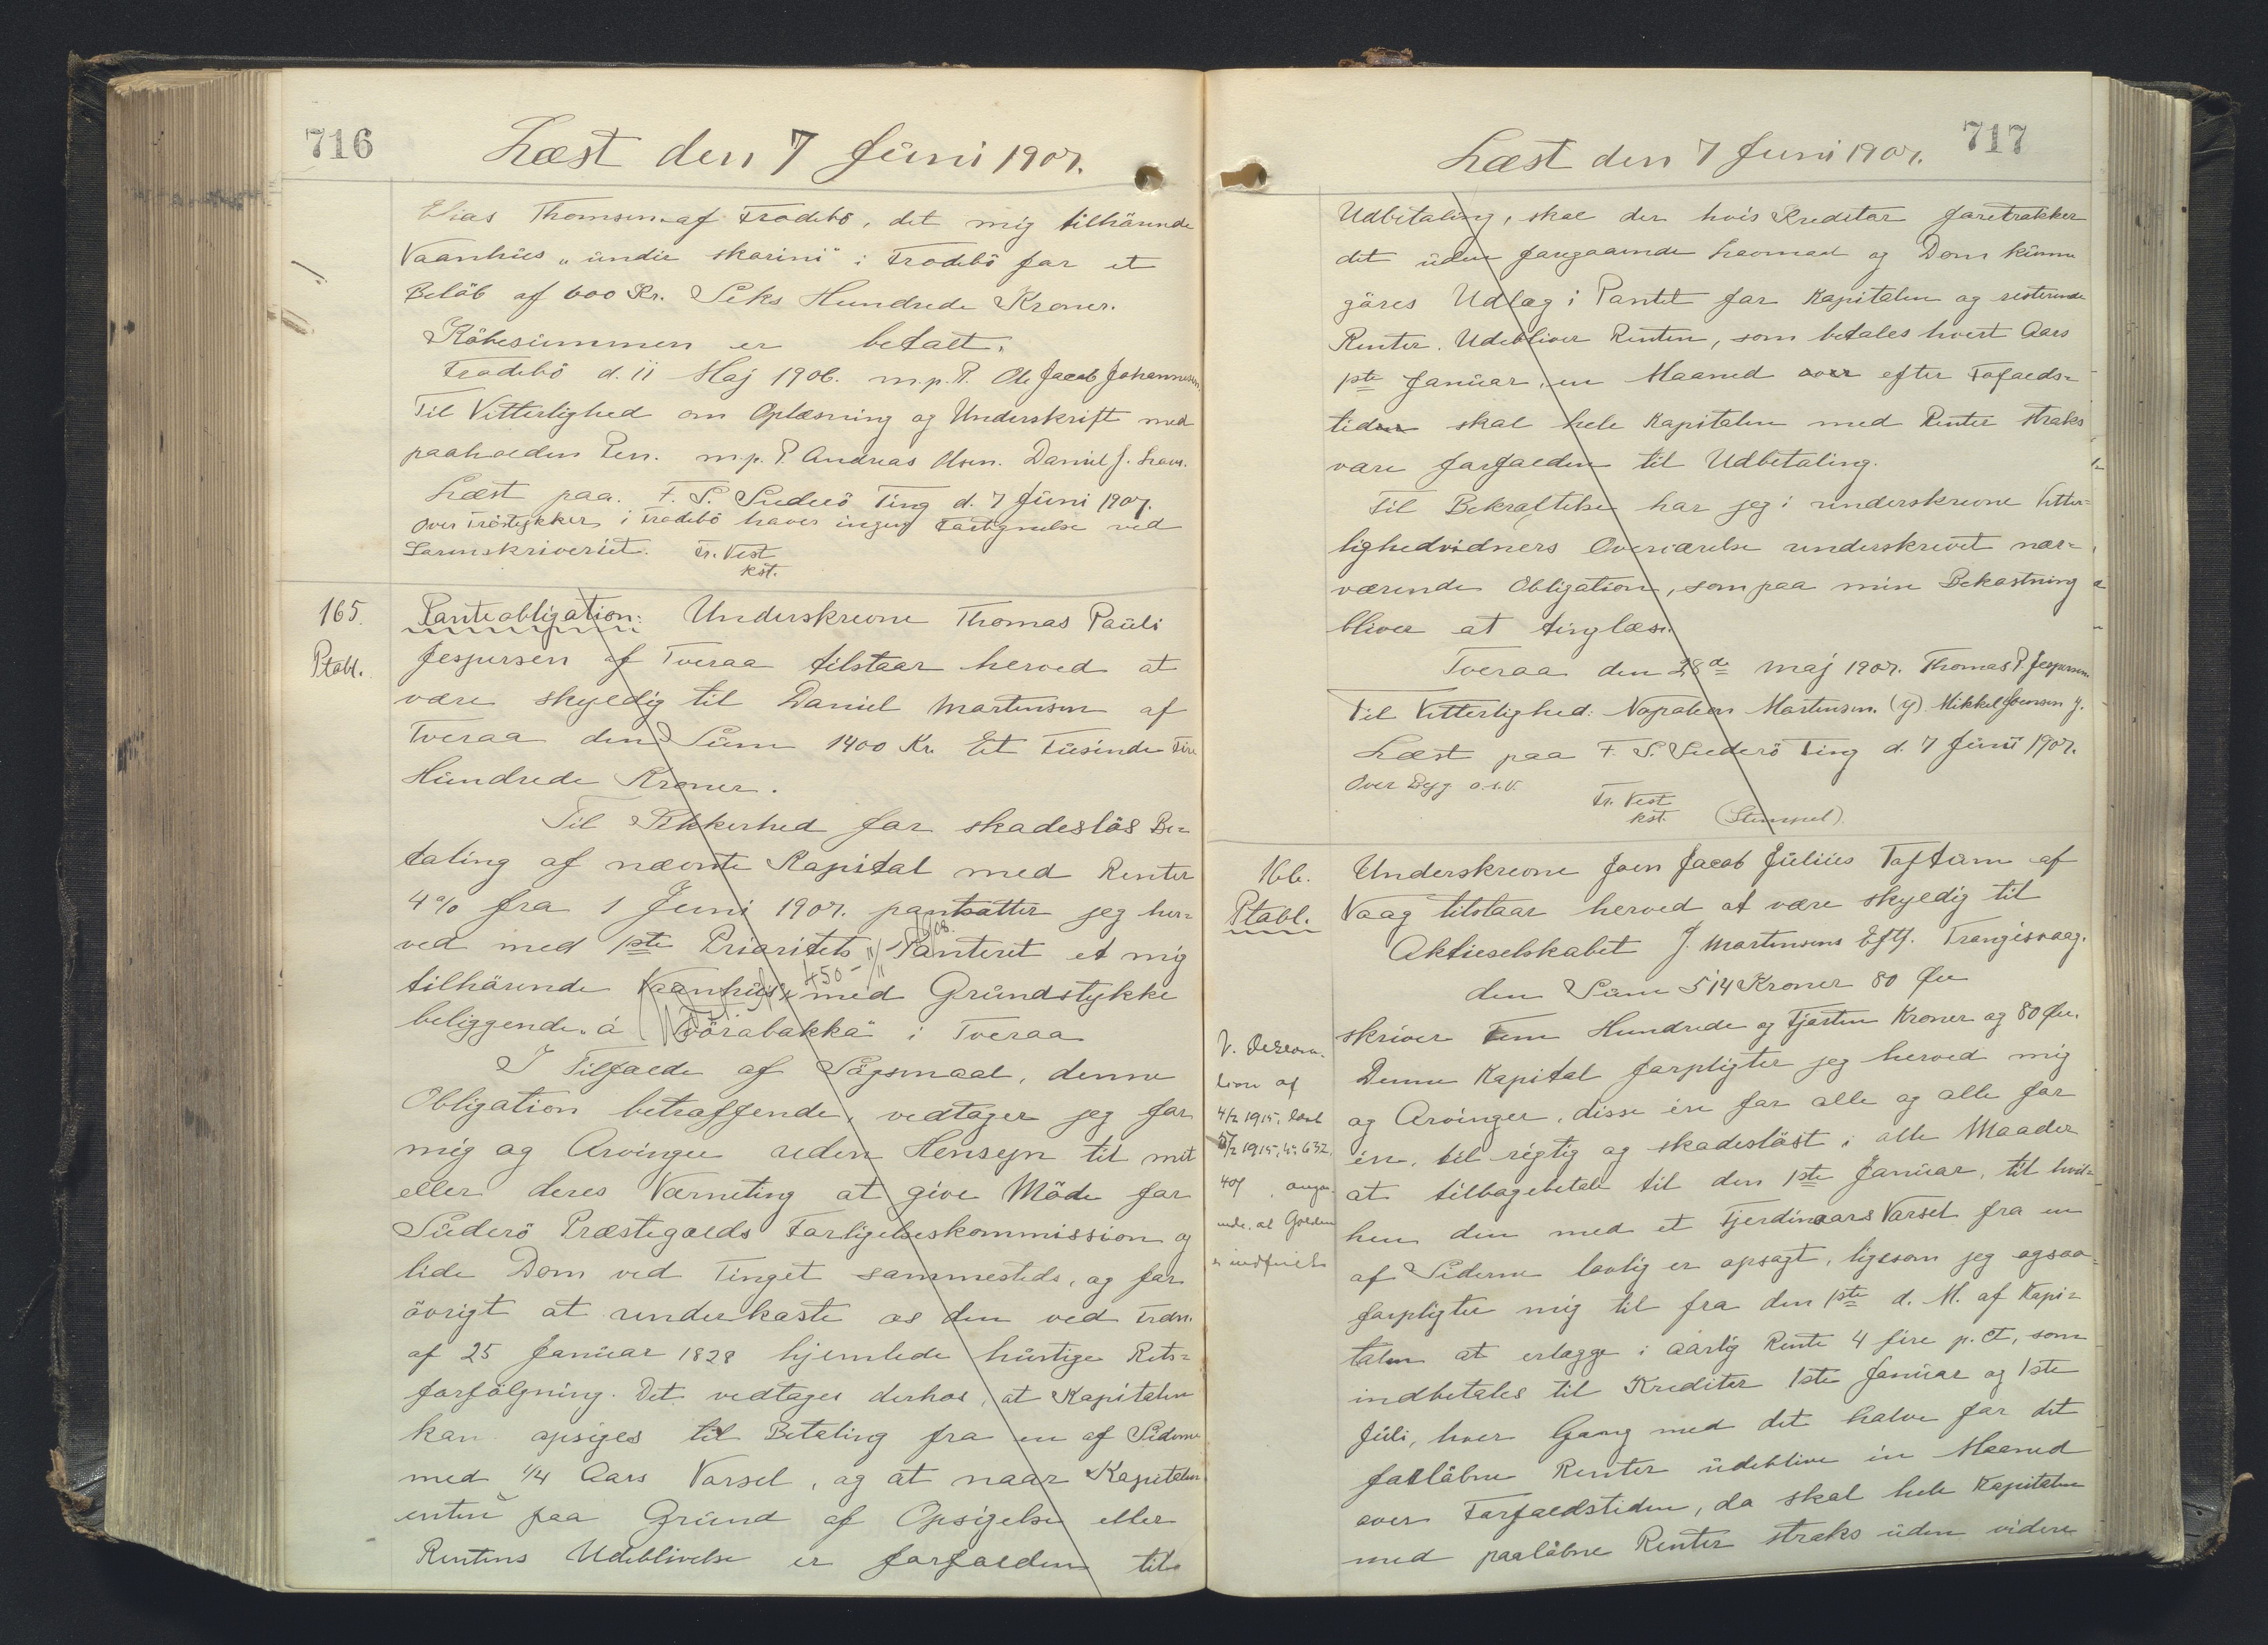 716
Læst den 7 Juni 1907.
Elias Thomsen af Frodebö, det mig tilhörende
Vaanhus „undir skorini" i Frodebö for et
Belöb af 600 Kr. Seks Hundrede Kroner.
Köbesummen er betalt.
Frodebö d. 11 Maj 1906. m.p.P. Ole Jacob Johannesen
Til Vitterlighed om Oplæsning og Underskrift med
paaholden Pen. m.p.P. Andreas Olsen. Daniel J.
Læst paa F. S. Suderö Ting d. 7 Juni 1907.
Over Tröstykker i Frodebö haves ingen Fortegnelse ved
Sorenskriveriet. Fr. Vest
kst.
165.
Ptabl.
Panteobligation: Underskrevne Thomas Pauli
Jespersen af Tveraa tilstaar herved at
være skyldig til Daniel Martensen af
Tveraa den Sum 1400 Kr. Et Tusinde Fire
Hundrede Kroner.
Til Sikkerhed for skadeslös Be=
taling af nævnte Kapital med Renter
4% fra 1 Juni 1907. pantsætter jeg her=
ved med 1ste Prioritets Panteret et mig
450 - 11/11
08.
tilhörende Vaanhus med Grundstykke
beliggende „á Tvörabakka" i Tveraa
I Tilfælde af Sögsmaal, denne
Obligation betræffende, vedtager jeg for
mig og Arvinger uden Hensyn til mit
eller deres Værneting at give Möde for
Suderö Præstegælds Forligelseskommission og
lide Dom ved Tinget sammesteds, og for
övrigt at underkaste os den ved Frdn.
af 25 Januar 1828 hjemlede hurtige Rets=
forfölgning. Det vedtages derhos, at Kapitalen
kan opsiges til Betaling fra en af Siderne
med 1/4 Aars Varsel, og at naar Kapitalen
enten paa Grund af Opsigelse eller
Rentens Udeblivelse er forfalden til
717
Læst den 7 Juni 1907.
Udbetaling, skal der hvis Kreditor foretrækker
det uden foregaaende Lovmaal og Dom kunne
göres Udlæg i Pantet for Kapitalen og resterende
Renter. Udebliver Renten, som betales hvert Aars
1ste Januar, en Maaned over efter Fofalds=
tiden skal hele Kapitalen med Renter straks
være forfalden til Udbetaling.
Til Bekræftelse har jeg i underskrevne Vitter=
lighedvidners Overværelse underskrevet nær=
værende Obligation, som paa min Bekostning
bliver at tinglæse.
Tveraa den 28de Maj 1907. Thomas P. Jespersen
Til Vitterlighed: Napoleon Martensen. (y) Mikkel Joensen y.
Læst paa F. S. Suderö Ting d. 7 Juni 1907.
Over Byg o.s.v.
Fr. Vest
kst. (Stempel)
166.
Ptabl.
Underskrevne Joen Jacob Julius Toftum af
Vaag tilstaar herved at være skyldig til
Aktieselskabet J. Mortensens Eftf. Trangisvaag.
den Sum 514 Kroner 80 Øre
skriver Fem Hundrede og Fjorten Kroner og 80 Øre.
Denne Kapital forpligter jeg herved mig
og Arvinger, disse én for alle og alle for
én, til rigtig og skadeslöst i alle Maader
at tilbagebetale til den 1ste Januar, til hvil=
hen den med et Fjerdingaars Varsel fra en
af Siderne lovlig er opsagt, ligesom jeg ogsaa
forpligter mig til fra den 1ste d. M. af Kapi=
talen at erlægge i aarlig Rente 4 fire p. Ct, som
indbetales til Kreditor 1ste Januar og 1ste
Juli, hver Gang med det halve for det
forlöbne Renter udeblive én Maaned
over Forfaldstiden, da skal hele Kapitalen
med paalöbne Renter straks uden videre
V. Deklara-
tion af
4/2 1915, læst
5/2 1915, 4. 632,
401
at Gælden
er indfriet